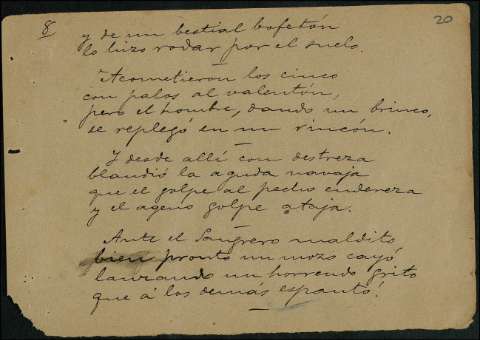 8
20
y de un bestial bofetón
lo hizo rodar por el suelo.
Acometieron los cinco
con palos al valentón,
pero el hombre, dando un brinco,
se replegó en un rincón.
Y desde allí con destreza
blandió la aguda navaja
que el golpe al pecho endereza
y el ageno golpe ataja.
Ante el Sangrero maldito
bien pronto un mozo cayó
lanzando un horrendo grito
que a los demás espantó.